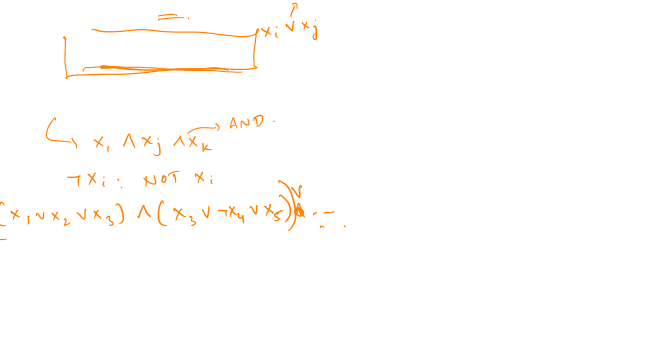 xᵢ ∨ xⱼ
xᵢ ∧ xⱼ ∧ xₖ → AND.
¬xᵢ : NOT xᵢ
(x₁ ∨ x₂ ∨ x₃) ∧ (x₃ ∨ ¬x₄ ∨ x₅) ∨ ....